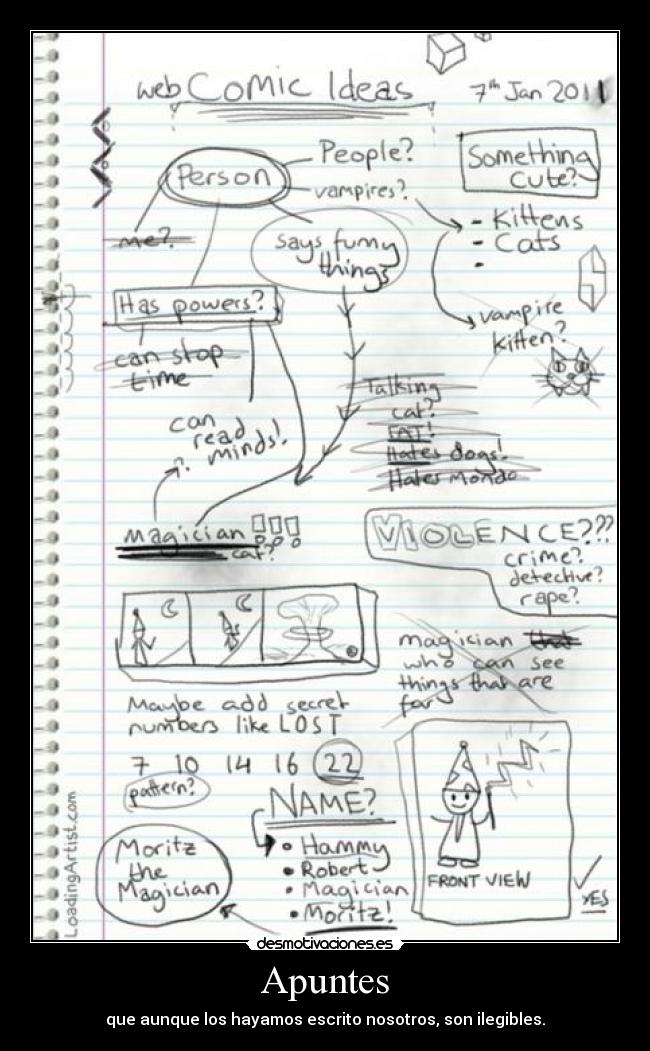 web Comic Ideas
7th Jan 2011
Person
People?
vampires?
Something
cute?
me?
says funny
things
- Kittens
- Cats
-
Has powers?
vampire
kitten?
can stop
time
Talking
cat?
FAT!
Hates dogs!
Hates Mondo
can
read
minds!
?
magician!!!
cat?
VIOLENCE???
crime?
detective?
rape?
magician that
who can see
things that are
far
Maybe add secret
numbers like LOST
7 10 14 16 22
pattern?
NAME?
• Hammy
• Robert
• Magician
• Moritz!
Moritz
the
Magician
FRONT VIEW
YES
LoadingArtist.com
desmotivaciones.es
Apuntes
que aunque los hayamos escrito nosotros, son ilegibles.